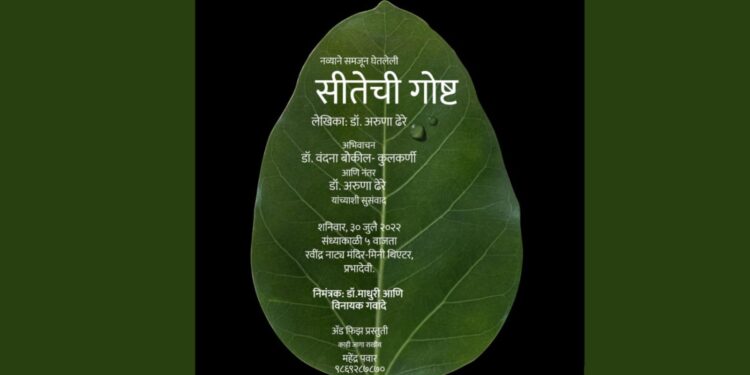 नव्याने समजून घेतलेली
सीतेची गोष्ट
लेखिका: डॉ. अरुणा ढेरे
अभिवाचन
डॉ. वंदना बोकील- कुलकर्णी
आणि नंतर
डॉ. अरुणा ढेरे
यांच्याशी सुसंवाद
शनिवार, ३० जुलै २०२२
संध्याकाळी ५ वाजता
रवींद्र नाट्य मंदिर-मिनी थिएटर,
प्रभादेवी.
निमंत्रक: डॉ.माधुरी आणि
विनायक गवांदे
अ‍ॅड फिझ प्रस्तुती
काही जागा राखीव
महेंद्र पवार
९८६९२८७८७०